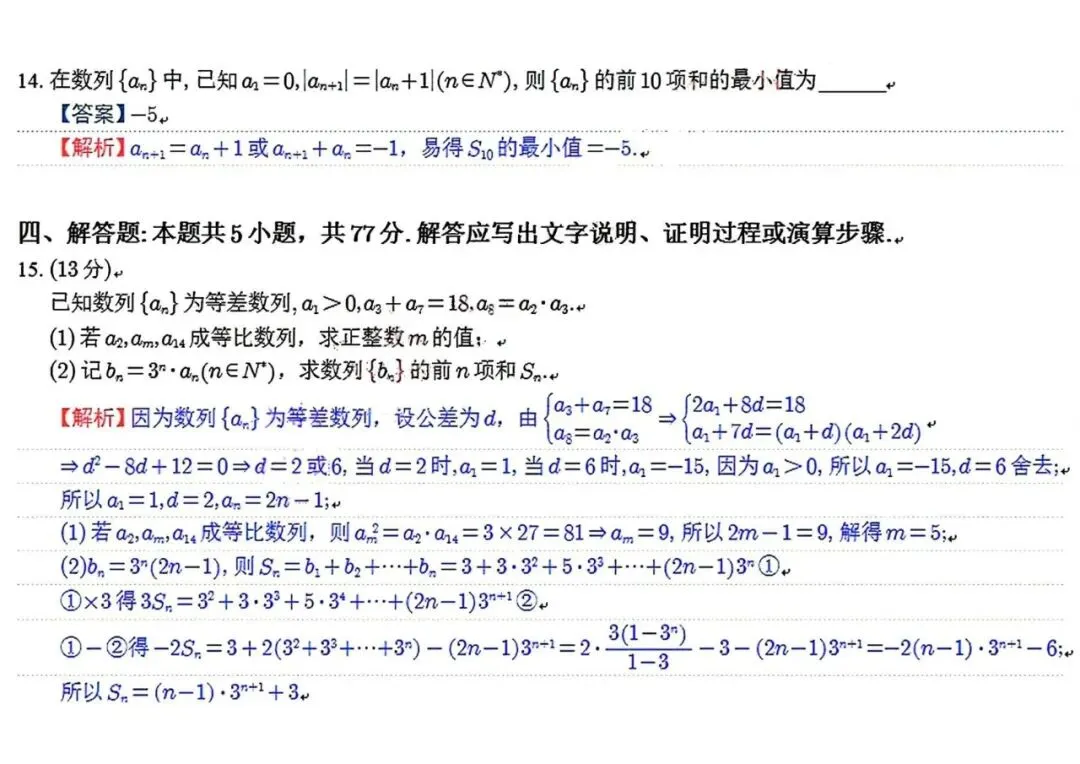 14. 在数列{aₙ}中, 已知a₁=0,|aₙ₊₁|=|aₙ+1|(n∈N*), 则{aₙ}的前10项和的最小值为______
【答案】−5
【解析】aₙ₊₁=aₙ+1或aₙ₊₁+aₙ=−1, 易得S₁₀的最小值=−5.
四、解答题: 本题共5小题, 共77分. 解答应写出文字说明、证明过程或演算步骤.
15. (13分)
已知数列{aₙ}为等差数列, a₁>0,a₃+a₇=18,a₈=a₂·a₃.
(1) 若a₂,aₘ,a₁₄成等比数列, 求正整数m的值;
(2) 记bₙ=3ⁿ·aₙ(n∈N*), 求数列{bₙ}的前n项和Sₙ.
【解析】因为数列{aₙ}为等差数列, 设公差为d, 由{a₃+a₇=18 a₈=a₂·a₃ ⇒{2a₁+8d=18 a₁+7d=(a₁+d)(a₁+2d)
⇒d²−8d+12=0⇒d=2或6, 当d=2时,a₁=1, 当d=6时,a₁=−15, 因为a₁>0, 所以a₁=−15,d=6舍去;
所以a₁=1,d=2,aₙ=2n−1;
(1) 若a₂,aₘ,a₁₄成等比数列, 则aₘ²=a₂·a₁₄=3×27=81⇒aₘ=9, 所以2m−1=9, 解得m=5;
(2)bₙ=3ⁿ(2n−1), 则Sₙ=b₁+b₂+⋯+bₙ=3+3·3²+5·3³+⋯+(2n−1)3ⁿ①
①×3得3Sₙ=3²+3·3³+5·3⁴+⋯+(2n−1)3ⁿ⁺¹②
①−②得−2Sₙ=3+2(3²+3³+⋯+3ⁿ)−(2n−1)3ⁿ⁺¹=2·3(1−3ⁿ)/(1−3)−3−(2n−1)3ⁿ⁺¹=−2(n−1)·3ⁿ⁺¹−6;
所以Sₙ=(n−1)·3ⁿ⁺¹+3